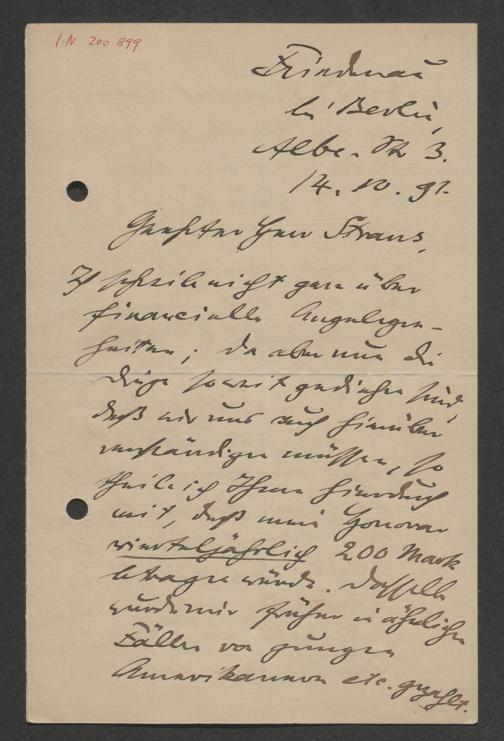 IN 200 899
Friedenau
bei Berlin,
Albe-Str 3.
14. 10. 91.
Geehrter Herr Straus,
Ich schreibe nicht gern über
financielle Angelegen-
heiten; da aber nun die
Dinge soweit gediehen sind,
daß wir uns auch hierüber
verständigen müssen, so
theile ich Ihnen hierdurch
mit, daß mein Honorar
vierteljährlich 200 Mark
betragen würde. Dasselbe
wurde mir früher in ähnlichen
Fällen von jungen
Amerikanern etc. gezahlt.